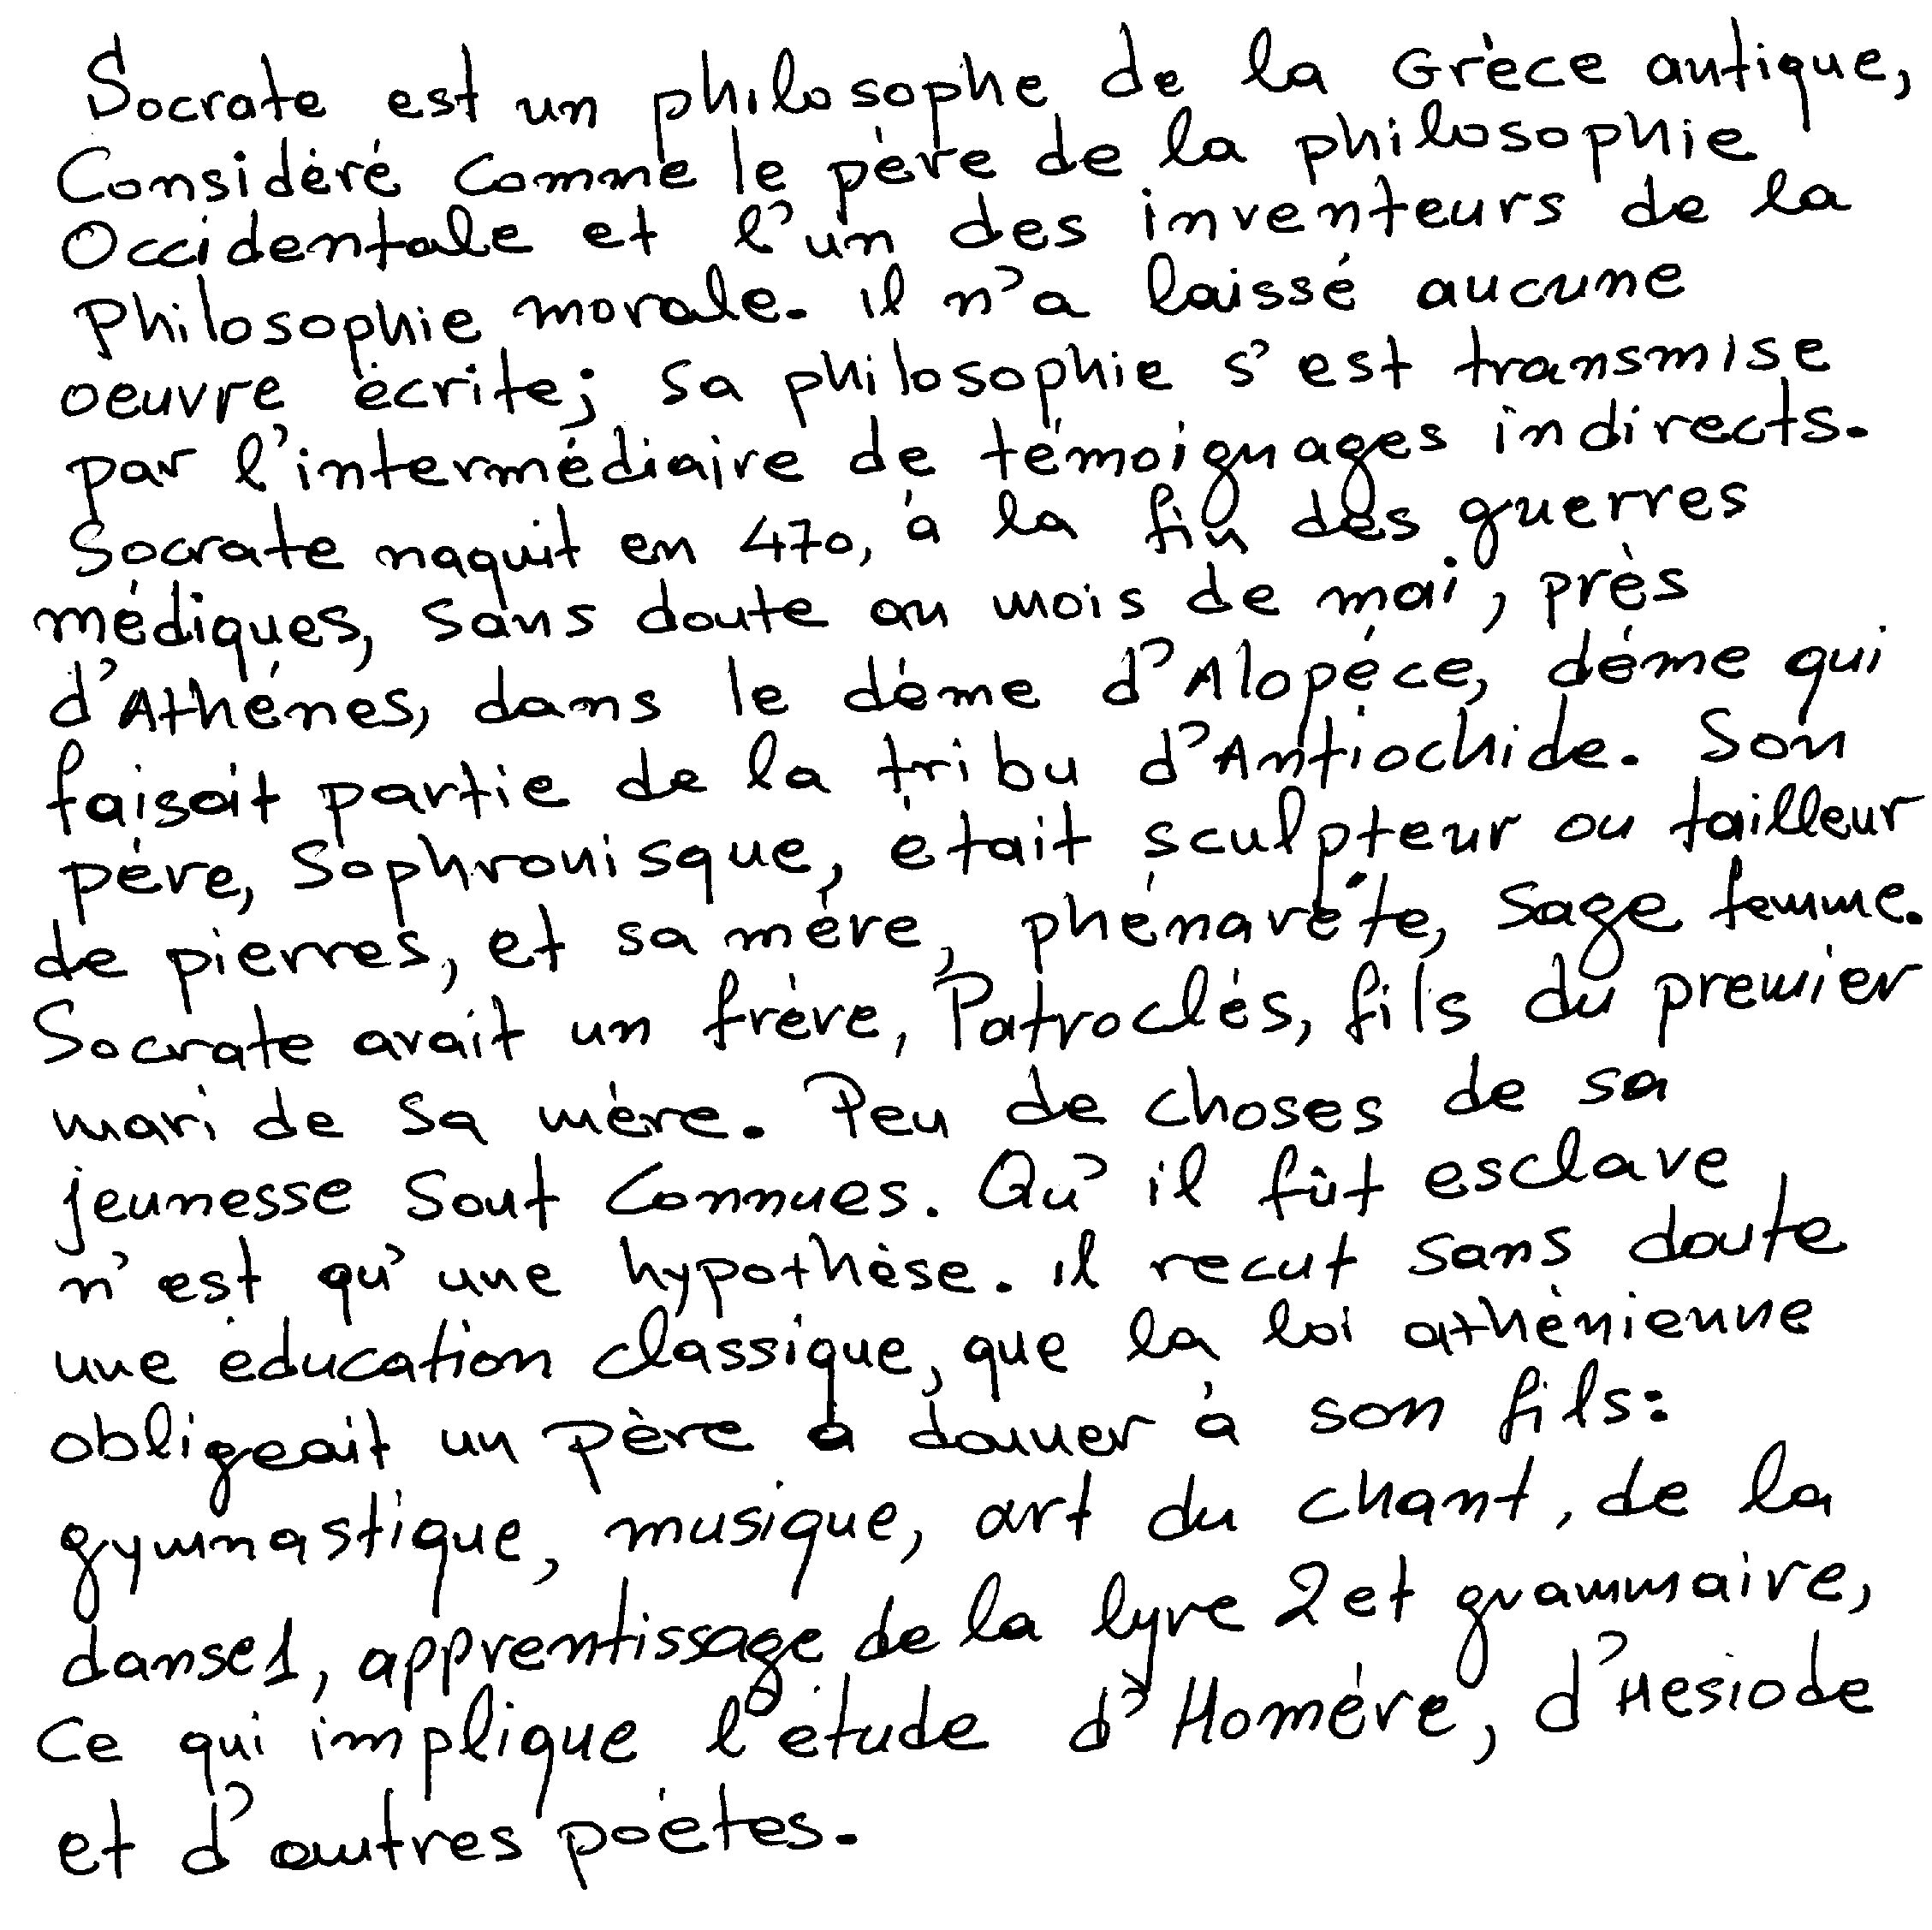 Socrate est un philosophe de la Grèce antique,
Considéré comme le père de la philosophie
Occidentale et l'un des inventeurs de la
Philosophie morale. il n'a laissé aucune
oeuvre écrite; sa philosophie s'est transmise
par l'intermédiaire de témoignages indirects.
Socrate naquit en 470, à la fin des guerres
médiques, sans doute au mois de mai, près
d'Athénes, dans le déme d'Alopéce, déme qui
faisait partie de la tribu d'Antiochide. Son
pére, Sophronisque, était sculpteur ou tailleur
de pierres, et sa mére, phénaréte, sage femme.
Socrate avait un frère, Patroclés, fils du premier
mari de sa mère. Peu de choses de sa
jeunesse sont connues. Qu'il fût esclave
n'est qu'une hypothèse. il recut sans doute
une éducation classique, que la loi athénienne
obligeait un père à donner à son fils:
gymnastique, musique, art du chant, de la
danse1, apprentissage de la lyre 2 et grammaire,
Ce qui implique l'étude d'Homére, d'Hesiode
et d'autres poétes.